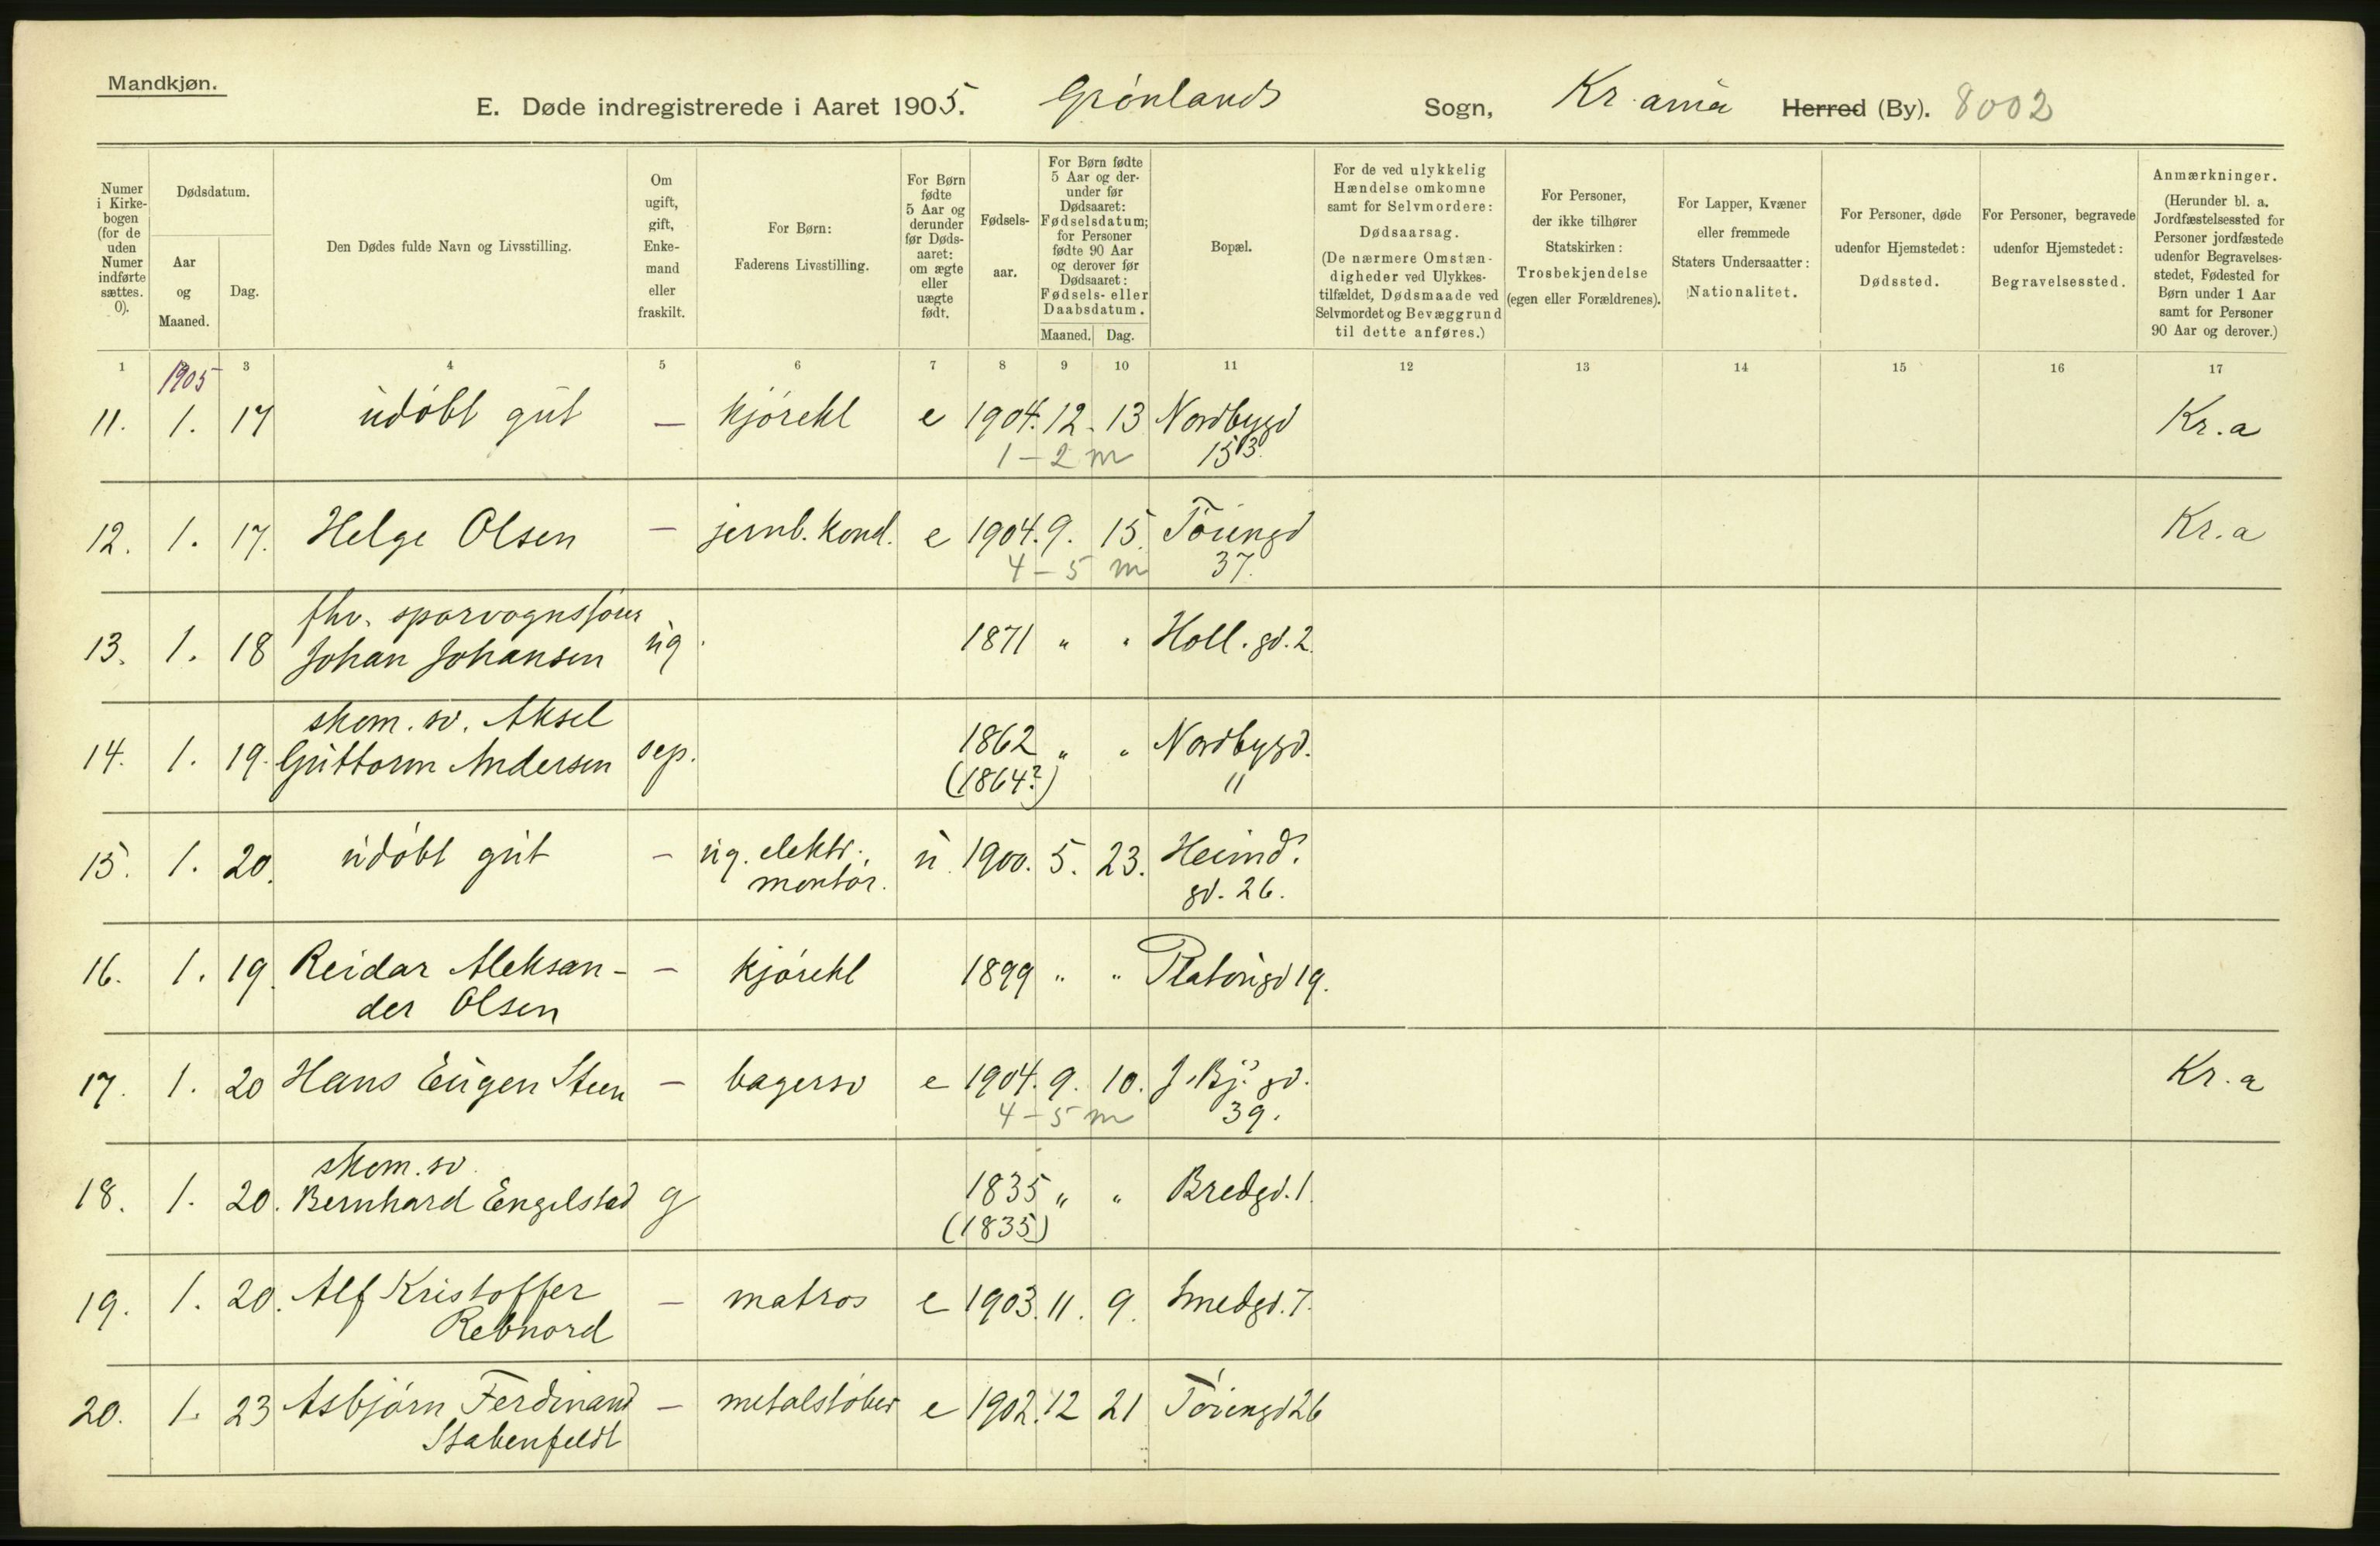 Mandkjøn.
E. Døde indregistrerede i Aaret 1905. Grønlands Sogn, Kr.ania Herred (By). 8002
Numer i Kirkebogen (for de uden Numer indførte sættes. 0).
Dødsdatum.
Aar og Maaned.
Dag.
Den Dødes fulde Navn og Livsstilling.
Om ugift, gift, Enkemand eller fraskilt.
For Børn: Faderens Livsstilling.
For Børn fødte 5 Aar og derunder før Dødsaaret: om ægte eller uægte født.
Fødselsaar.
For Børn fødte 5 Aar og derunder før Dødsaaret: Fødselsdatum; for Personer fødte 90 Aar og derover før Dødsaaret: Fødsels- eller Daabsdatum.
Maaned. Dag.
Bopæl.
For de ved ulykkelig Hændelse omkomne samt for Selvmordere: Dødsaarsag. (De nærmere Omstændigheder ved Ulykkestilfældet, Dødsmaade ved Selvmordet og Bevæggrund til dette anføres.)
For Personer, der ikke tilhører Statskirken: Trosbekjendelse (egen eller Forældrenes).
For Lapper, Kvæner eller fremmede Staters Undersaatter: Nationalitet.
For Personer, døde udenfor Hjemstedet: Dødssted.
For Personer, begravede udenfor Hjemstedet: Begravelsessted.
Anmærkninger. (Herunder bl. a. Jordfæstelsessted for Personer jordfæstede udenfor Begravelsesstedet, Fødested for Børn under 1 Aar samt for Personer 90 Aar og derover.)
1 3 4 5 6 7 8 9 10 11 12 13 14 15 16 17
1905
11. 1. 17 udøbt gut — kjørekl e 1904. 12. 13 Nordbygd Kr.a
1 - 2 m 15 B.
12. 1. 17. Helge Olsen — jernb. kond. e 1904. 9. 15. Tøiengd Kr.a
4 - 5 m 37.
fhv. sporvognsfører
13. 1. 18 Johan Johansen ug. 1871 " " Holl. gd. 2.
skom. sv. Aksel
14. 1. 19. Guttorm Andersen sep. 1862 " " Nordbygd.
(1864?) 11
15. 1. 20. udøbt gut — ug. elektr. u. 1900. 5. 23. Heimd.
montør. gd. 26.
16. 1. 19. Reidar Aleksan- — kjørekl 1899 " " Platougd 19.
der Olsen
17. 1. 20 Hans Eugen Steen — bagersv e 1904. 9. 10. J. Bj. gd. Kr.a
4 - 5 m 39.
skom. sv.
18. 1. 20. Bernhard Engelstad g 1835 " " Bredgd. 1.
(1835)
19. 1. 20. Alf Kristoffer — matros e 1903. 11. 9. Smedgd. 7.
Rebnord
20. 1. 23 Asbjørn Ferdinand — metalstøber e 1902. 12 21 Tøiengd 26
Stabenfeldt